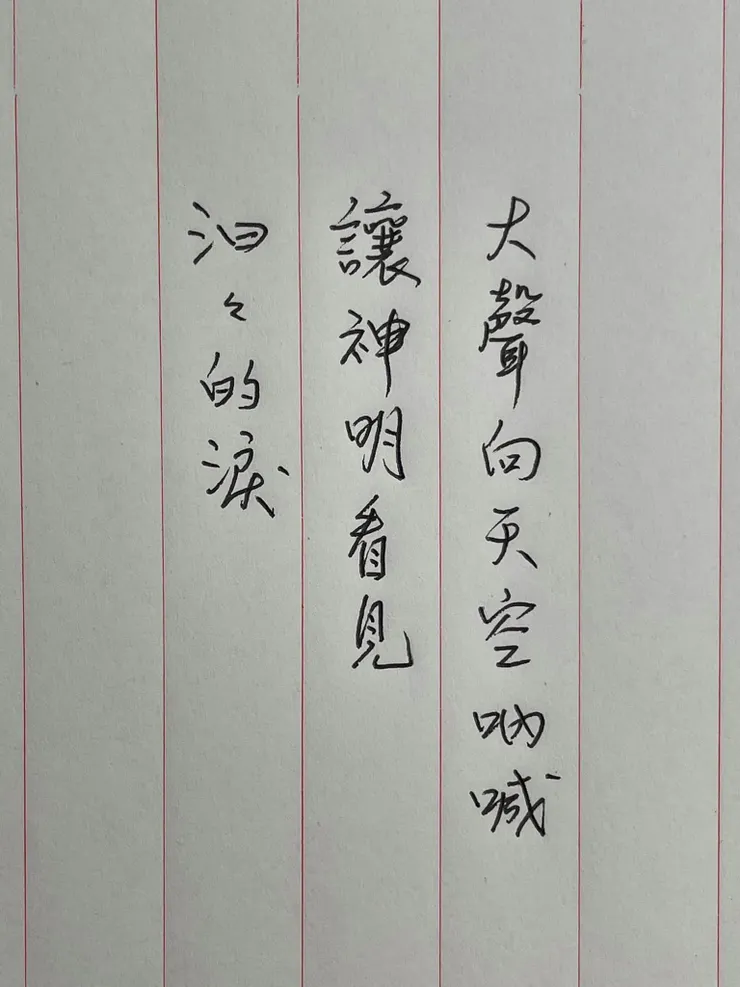 大聲向天空吶喊
讓神明看見
汩々的淚